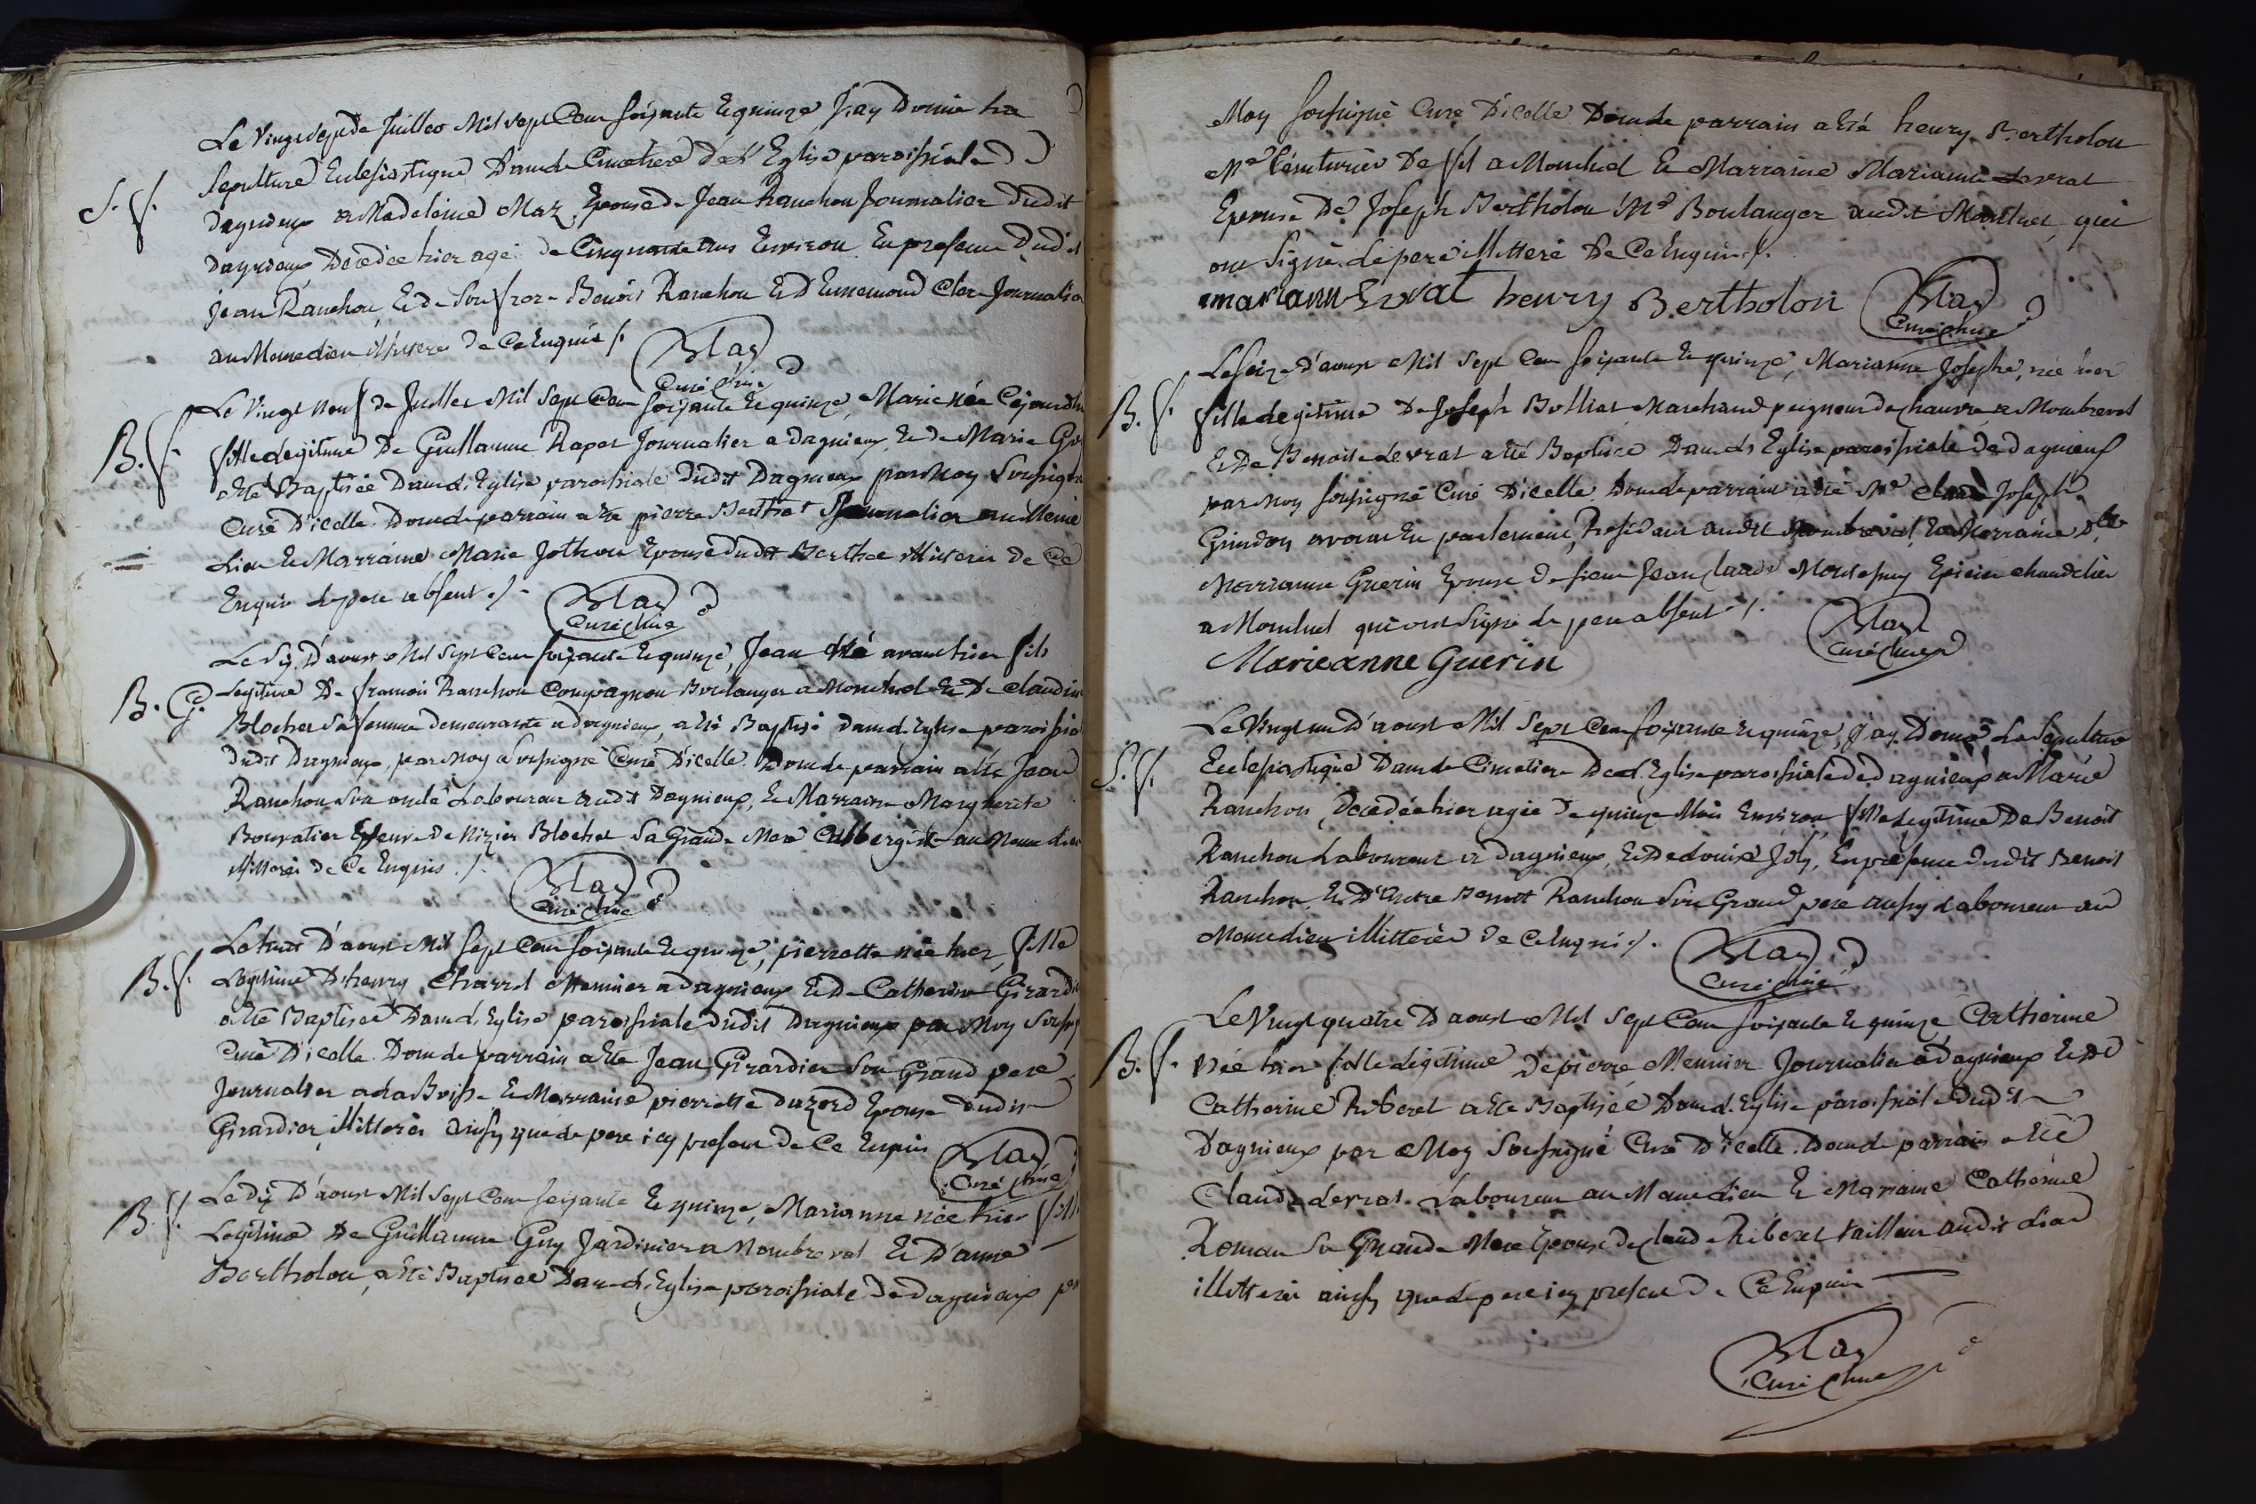 Le Vingt sept de Juillet Mil sept Cent soixante et quinze J'ay Donné la
S. f. Sepulture Eclesiastique Dans le Cimetiere De l'Eglise paroissiale
Dagnieux a Madeleine Maz Epouse de Jean Ranchon Journalier Dudit
Dagnieux Decedée hier agée de Cinquante ans Environ En presence Dudit
Jean Ranchon, et de Son frere Benoit Ranchon et D'Ennemond Clere Journalier
au Meme lieu illiteres de Ce Enquis ./.
Blay
Curé
B. f. Le Vingt neuf de Juillet Mil Sept Cent soixante et quinze, Marie née
fille legitime De Guillaume Rapet Journalier a dagnieux, et de Marie
a été Baptisée Dans l'Eglise paroissiale Dudit Dagnieux par Moy Soussigné
Curé D'icelle. Dont le parrain a été pierre Berthet Journalier au Meme
Lieu et Marraine Marie Jothon Epouse dudit Berthet illiteres de Ce
Enquis le pere absent ./.
Blay
Curé
Le Six D'aoust Mil Sept Cent soixante et quinze, Jean Né avant hier fils
B. G. Legitime De francois Ranchon Compagnon Boulanger a Montluel et De Claudine
Blochet Sa femme demeurante a dagnieux, a été Baptisé Dans l'Eglise paroissiale
Dudit Dagnieux, par Moy Soussigné Curé D'icelle. Dont le parrain a été Jean
Ranchon Son oncle Laboureur audit Dagnieux, et Marraine Marguerite
Bouvatier Veuve De Nizier Blochet Sa Grande Mere au Meme lieu
illiteres de Ce Enquis ./.
Blay
Curé
Le huit D'aoust Mil Sept Cent soixante et quinze, pierrette née hier, fille
B. f. Legitime D'henry Charrel Meunier a dagnieux et De Catherine Girardier
a été Baptisée Dans l'Eglise paroissiale Dudit Dagnieux par Moy Soussigné
Curé D'icelle. Dont le parrain a été Jean Girardier Son Grand pere
Journalier a la Boisse et Marraine pierrette duzord Epouse Dudit
Girardier, illiteres ainsy que le pere icy present De Ce Enquis
Blay
Curé
B. f. Le Dix D'aoust Mil Sept Cent soixante et quinze, Marianne née hier fille
Legitime De Guillaume Guy Jardinier a Montbreval et D'anne
Bertholon, a été Baptisée Dans l'Eglise paroissiale De dagnieux par
Moy soussigné Curé D'icelle. Dont le parrain a été henry Bertholon
Md a Montluel et Marraine Marianne Levrat
Epouse De Joseph Bertholon Md Boulanger audit Montluel, qui
ont Signé. le pere illiteré De Ce Enquis ./.
mariann Levrat henry Bertholon
Blay
Curé
Le Seize D'aoust Mil Sept Cent soixante et quinze, Marianne Josephe, née hier
B. f. fille legitime De Joseph Bolliat Marchand peigneur de chanvre a Montbreval
et De Benoite Levrat a été Baptisée Dans l'Eglise paroissiale De dagnieux
par Moy soussigné Curé D'icelle. Dont le parrain a été Me Claude Joseph
Grindon avocat En parlement, Resident audit Montbreval, et Marraine Dlle
Marianne Guerin Epouse De sieur Jean Claude Epicier chandelier
a Montluel qui ont Signé le pere absent ./.
Blay
Curé
Marieanne Guerin
Le Vingt un D'aoust Mil Sept Cent soixante et quinze, J'ay Donné La Sepulture
S. f. Eclesiastique Dans le Cimetiere De l'Eglise paroissiale De dagnieux a Marie
Ranchon, Decedée hier agée De quinze Mois Environ fille Legitime De Benoit
Ranchon Laboureur a Dagnieux, et De Louise Joly, En presence Dudit Benoit
Ranchon et D'autre Benoit Ranchon Son Grand pere aussy Laboureur au
Meme lieu illiteres de Ce Enquis ./.
Blay
Curé
Le Vingt quatre D'aoust Mil Sept Cent soixante et quinze Catherine
B. f. Née hier fille Legitime De pierre Meunier Journalier a Dagnieux et De
Catherine Riberet a été Baptisée Dans l'Eglise paroissiale Dudit
Dagnieux par Moy Soussigné Curé D'icelle. Dont le parrain a été
Claude Levrat. Laboureur au Meme Lieu et Marraine Catherine
Roman Sa Grande Mere Epouse De Claude Riberet tailleur audit Lieu
illiteres ainsy que le pere icy present De Ce Enquis
Blay
Curé